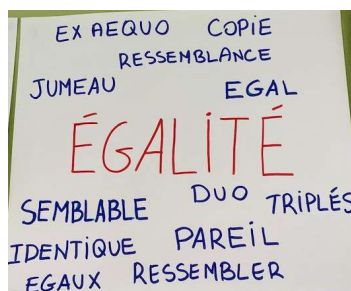 EX AEQUO COPiE
RESSEMBLANCE
JUMEAU EGAL
ÉGALiTÉ
SEMBLABLE DUO TRiPLÉS
IDENTiQUE PAREiL
EGAUX RESSEMBLER